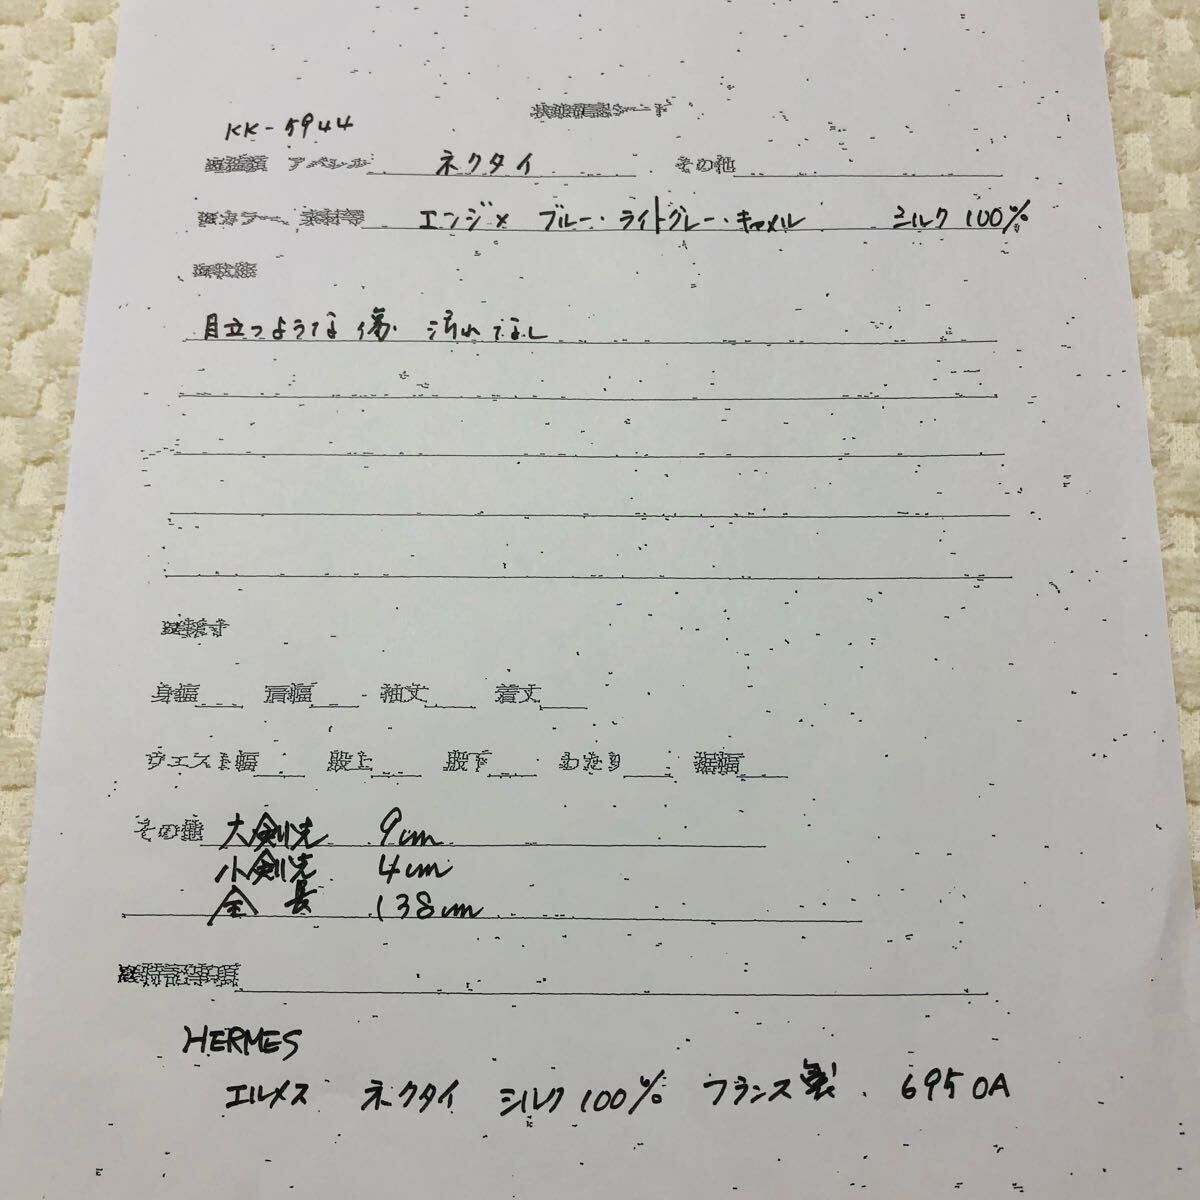 状態確認シート
KK-5944
※種類 アパレル ネクタイ その他
※カラー、素材等 エンジ× ブルー・ライトグレー・キャメル シルク 100%
※状態
目立つような傷、汚れなし
※採寸
身幅 肩幅 袖丈 着丈
ウエスト幅 股上 股下 わたり 裾幅
その他 大剣先 9cm
小剣先 4cm
全 長 138cm
※特記事項
HERMES
エルメス ネクタイ シルク 100% フランス製. 6950A